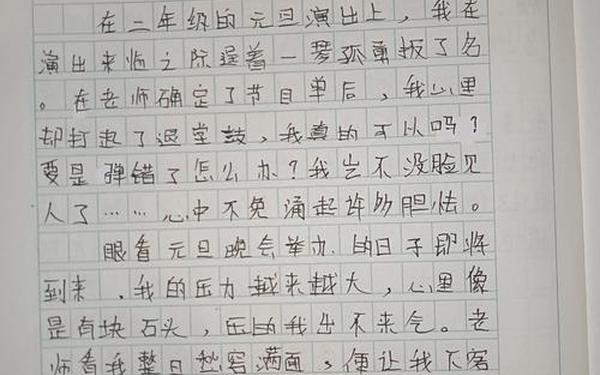 在二年级的元旦演出上，我在
演出来临之际逞着一琴孤勇报了名
。在老师确定了节目单后，我心里
却打起了退堂鼓，我真的可以吗？
要是弹错了怎么办？我岂不没脸见
人了……心中不免涌起许多胆怯。
眼看元旦晚会举办的日子即将
到来，我的压力越来越大，心里像
是有块石头，压的我出不来气。老
师看我整日愁容满面，便让我下客